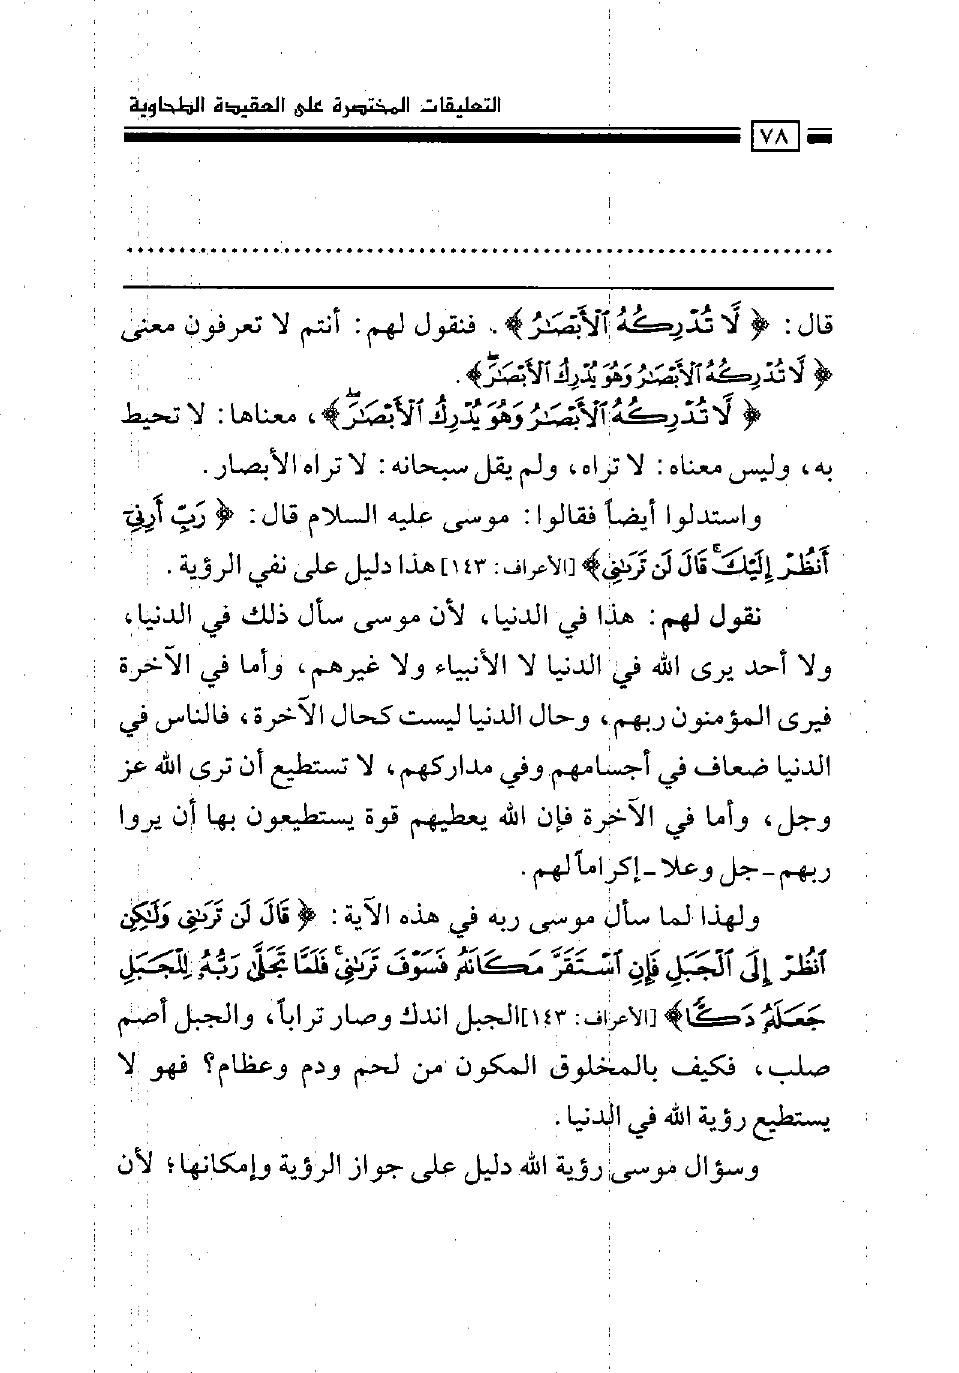 التعليقات المختصرة على العقيدة الطحاوية
٧٨
قال: ﴿ لَّا تُدْرِكُهُ ٱلْأَبْصَٰرُ ﴾. فنقول لهم: أنتم لا تعرفون معنى
﴿ لَّا تُدْرِكُهُ ٱلْأَبْصَٰرُ وَهُوَ يُدْرِكُ ٱلْأَبْصَٰرَۖ ﴾.
﴿ لَّا تُدْرِكُهُ ٱلْأَبْصَٰرُ وَهُوَ يُدْرِكُ ٱلْأَبْصَٰرَۖ ﴾، معناها: لا تحيط
به، وليس معناه: لا تراه، ولم يقل سبحانه: لا تراه الأبصار.
واستدلوا أيضاً فقالوا: موسى عليه السلام قال: ﴿ رَبِّ أَرِنِيٓ
أَنظُرْ إِلَيْكَۚ قَالَ لَن تَرَىٰنِي ﴾ [الأعراف: ١٤٣] هذا دليل على نفي الرؤية.
نقول لهم: هذا في الدنيا، لأن موسى سأل ذلك في الدنيا،
ولا أحد يرى الله في الدنيا لا الأنبياء ولا غيرهم، وأما في الآخرة
فيرى المؤمنون ربهم، وحال الدنيا ليست كحال الآخرة، فالناس في
الدنيا ضعاف في أجسامهم وفي مداركهم، لا تستطيع أن ترى الله عز
وجل، وأما في الآخرة فإن الله يعطيهم قوة يستطيعون بها أن يروا
ربهم ـ جل وعلا ـ إكراماً لهم.
ولهذا لما سأل موسى ربه في هذه الآية: ﴿ قَالَ لَن تَرَىٰنِي وَلَٰكِنِ
ٱنظُرْ إِلَى ٱلْجَبَلِ فَإِنِ ٱسْتَقَرَّ مَكَانَهُۥ فَسَوْفَ تَرَىٰنِيۚ فَلَمَّا تَجَلَّىٰ رَبُّهُۥ لِلْجَبَلِ
جَعَلَهُۥ دَكًّا ﴾ [الأعراف: ١٤٣] الجبل اندك وصار تراباً، والجبل أصم
صلب، فكيف بالمخلوق المكون من لحم ودم وعظام؟ فهو لا
يستطيع رؤية الله في الدنيا.
وسؤال موسى رؤية الله دليل على جواز الرؤية وإمكانها؛ لأن